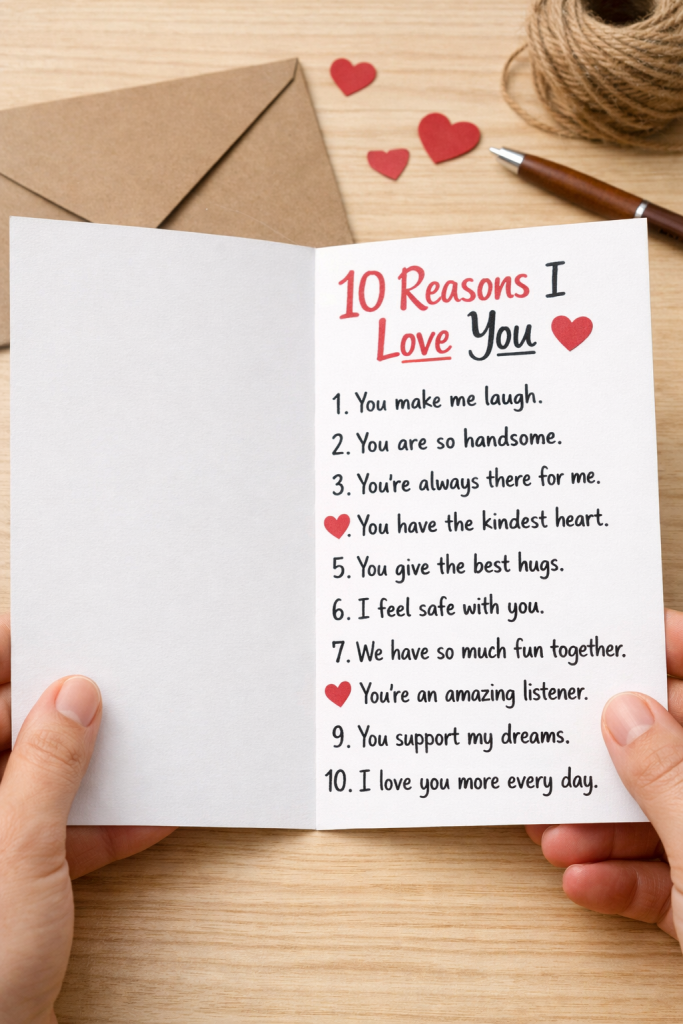 10 Reasons I
Love You
1. You make me laugh.
2. You are so handsome.
3. You're always there for me.
. You have the kindest heart.
5. You give the best hugs.
6. I feel safe with you.
7. We have so much fun together.
You're an amazing listener.
9. You support my dreams.
10. I love you more every day.